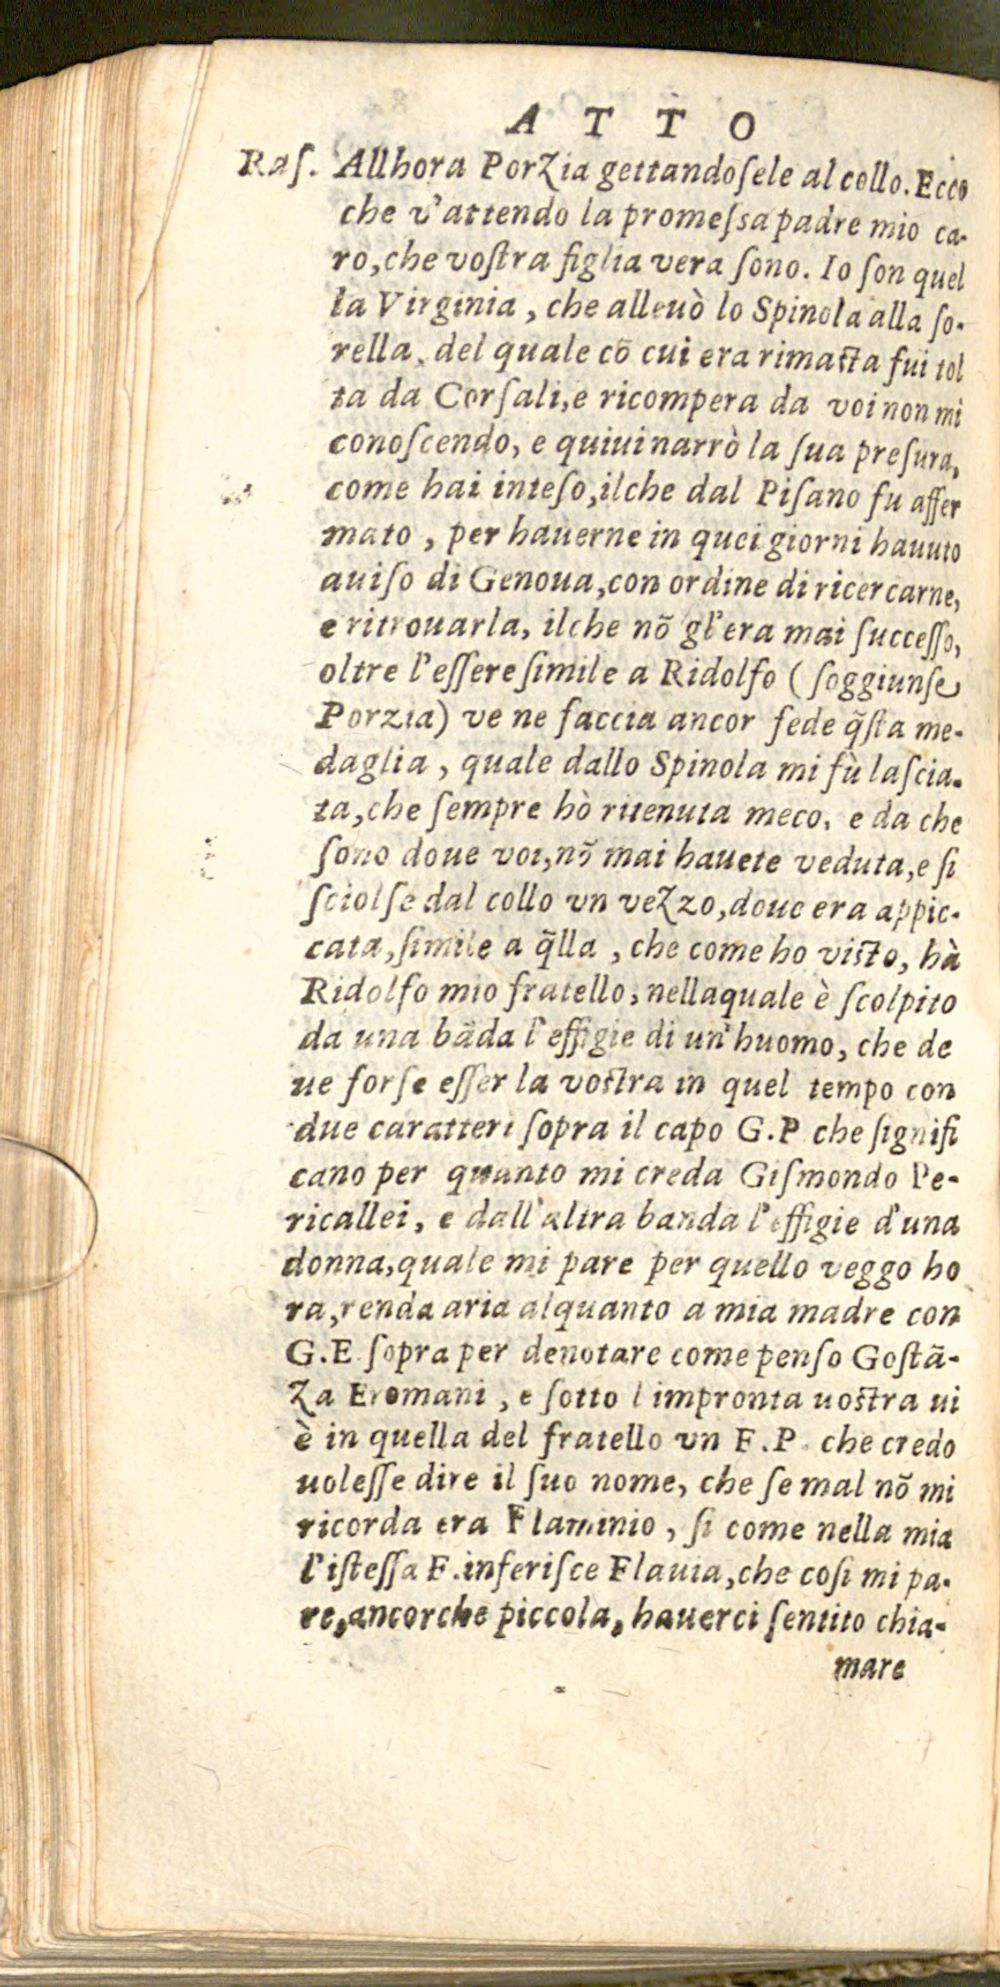 ATTO
Raſ. Allhora Porzia gettandoſele al collo. Ecco
che v'attendo la promeſsa padre mio ca-
ro, che voſtra figlia vera ſono. Io ſon quel
la Virginia, che alleuò lo Spinola alla ſo-
rella, del quale cō cui era rimaſta fui tol
ta da Corſali, e ricompera da voi non mi
conoſcendo, e quiui narrò la ſua preſura,
come hai inteſo, ilche dal Piſano fu affer
mato, per hauerne in quei giorni hauuto
auiſo di Genoua, con ordine di ricercarne,
e ritrouarla, ilche nō gl'era mai ſucceſſo,
oltre l'eſſere ſimile a Ridolfo (ſoggiunſe
Porzia) ve ne faccia ancor fede q̃ſta me-
daglia, quale dallo Spinola mi fù laſcia-
ta, che ſempre hò ritenuta meco, e da che
ſono doue voi, nō mai hauete veduta, e ſi
ſciolſe dal collo vn vezzo, doue era appic-
cata, ſimile a q̃lla, che come ho viſto, hà
Ridolfo mio fratello, nellaquale è ſcolpito
da una bāda l'effigie di un'huomo, che de
ue forſe eſſer la voſtra in quel tempo con
due caratteri ſopra il capo G.P che ſignifi
cano per quanto mi creda Giſmondo Pe-
ricallei, e dall'altra banda l'effigie d'una
donna, quale mi pare per quello veggo ho
ra, renda aria alquanto a mia madre con
G.E ſopra per denotare come penſo Goſtā-
za Eromani, e ſotto l impronta uoſtra ui
è in quella del fratello vn F.P. che credo
uoleſſe dire il ſuo nome, che ſe mal nō mi
ricorda era Flaminio, ſi come nella mia
l'iſteſſa F. inferiſce Flauia, che coſi mi pa-
re, ancorche piccola, hauerci ſentito chia-
mare